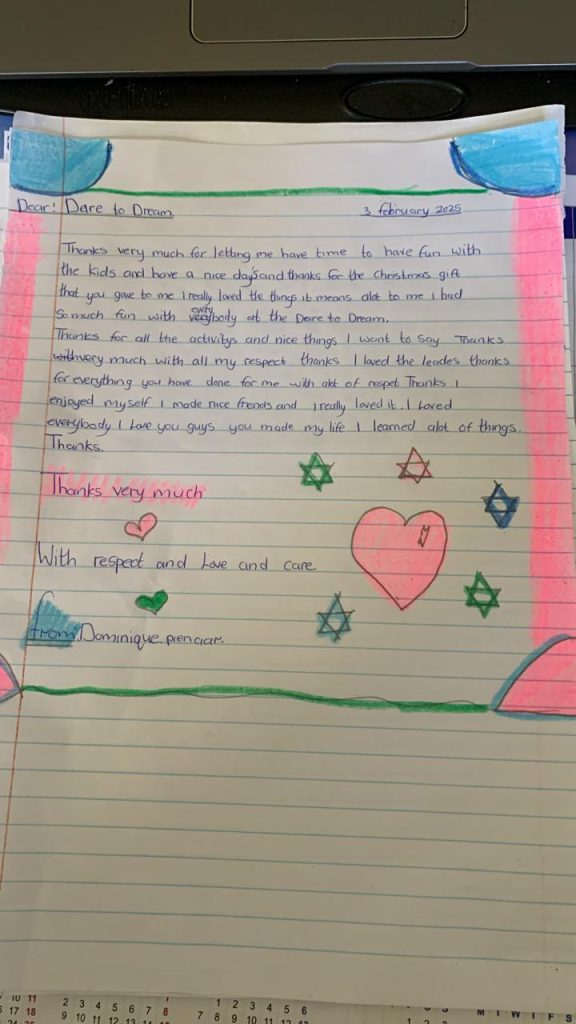 Dear: Dare to Dream
3 february 2025
Thanks very much for letting me have time to have fun with
the kids and have a nice days and thanks for the christmas gift
that you gave to me I really loved the things it means alot to me I had
so much fun with everybody at the Dare to Dream.
Thanks for all the activitys and nice things I want to say Thanks
very much with all my respect thanks I loved the leades thanks
for everything you have done for me with alot of respet Thanks I
enjoyed myself I made nice friends and I really loved it. I Loved
everybody I Love you guys you made my life I learned alot of things.
Thanks.
Thanks very much
With respect and Love and care.
from: Dominique pienaar.
10 11
17 18
2 3 4 5 6 7 8
9 10 11 12 13 14 15
1 2 3 4 5 6
7 8 9 10 11 12 13
M T W T F S
1 2 3 4